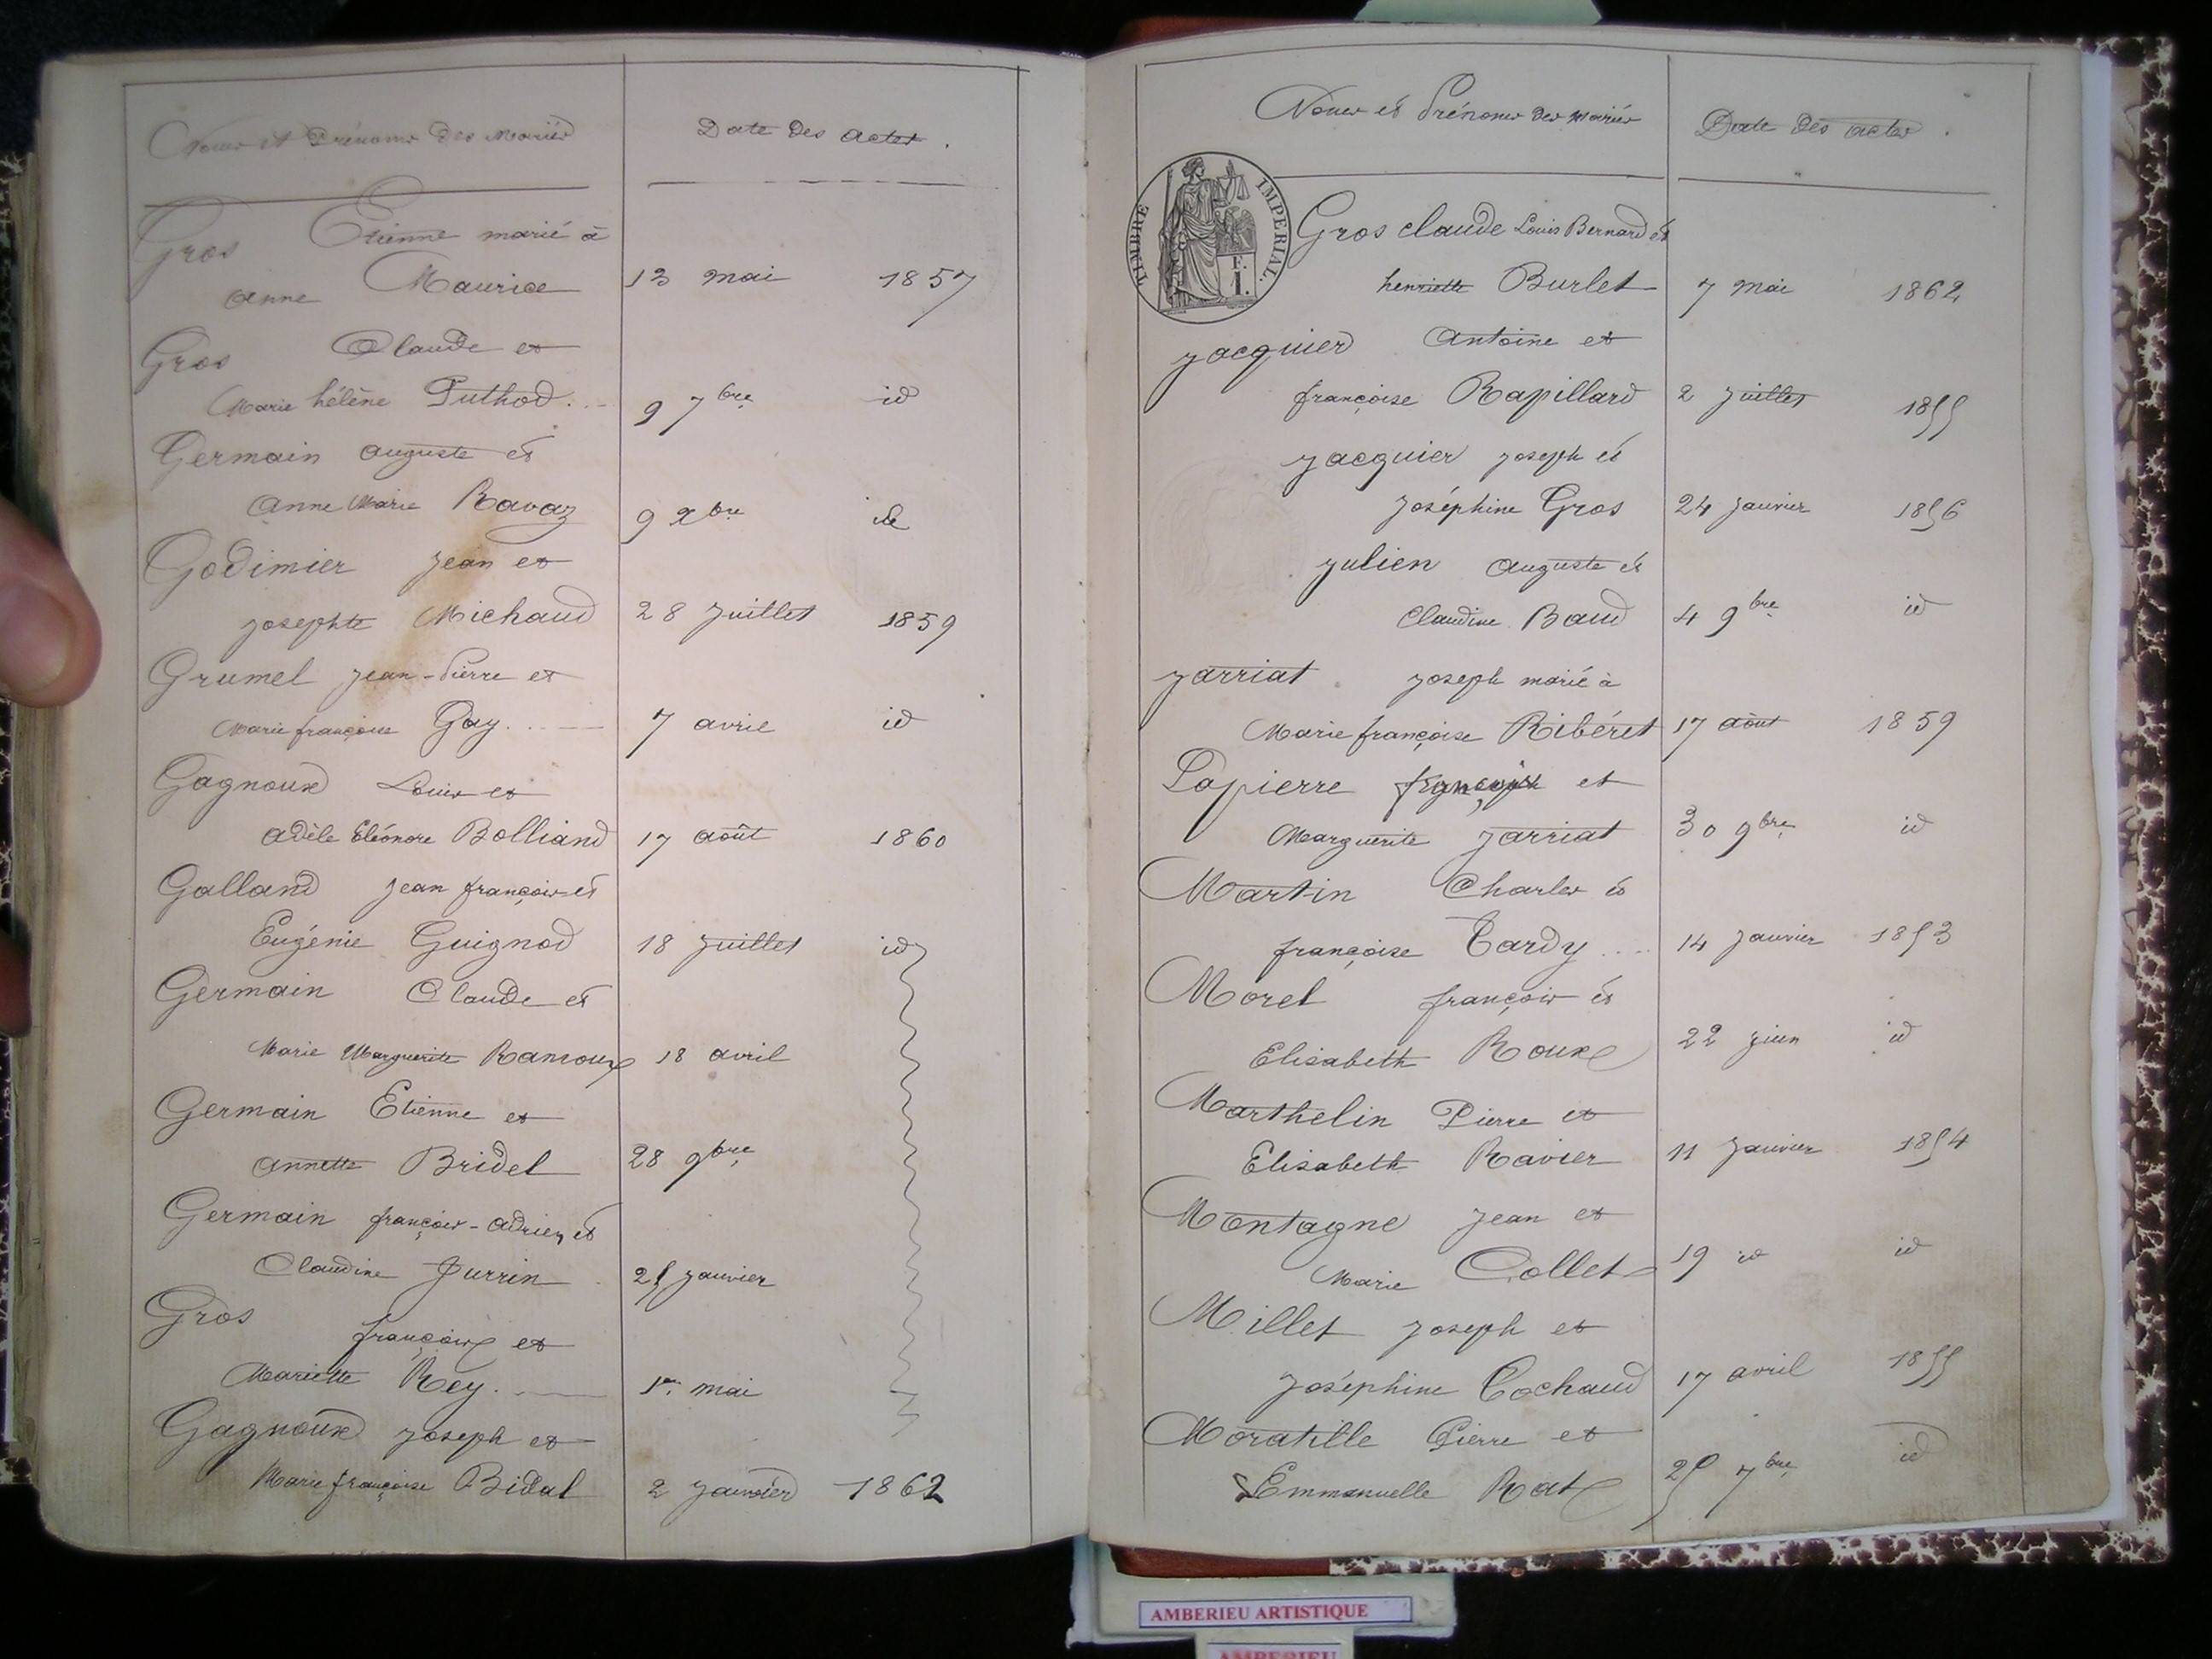 Noms et Prénoms des Mariés
Date des actes.
Gros Etienne marié à
anne Maurice 13 mai 1857
Gros Claude et
Marie hélène Puthod... 9 7bre id
Germain auguste et
Anne Marie Ravaz 9 xbre id
Godimier jean et
josephte Michaud 28 juillet 1859
Grumel jean-Pierre et
Marie françoise Gay. 7 avril id
Gagnoux Louis et
adèle Eléonore Bolliand 17 août 1860
Galland jean françois et
Eugénie Guignod 18 juillet id
Germain Claude et
Marie Marguerite 18 avril
Germain Etienne et
annette Bridel 28 9bre
Germain françois-adrien et
Claudine Jurrin 25 janvier
Gros françois et
Mariette Rey. 1er mai
Gagnoux joseph et
Marie françoise Bidal 2 janvier 1862
Noms et Prénoms des mariés
Date des actes.
TIMBRE IMPERIAL.
F.
1.
Gros claude Louis Bernard et
henriette Burlet 7 mai 1862
jacquier Antoine et
françoise Rapillard 2 juillet 1855
jacquier joseph et
joséphine Gros 24 janvier 1856
julien auguste et
Claudine Baud 4 9bre id
jarriat joseph marié à
Marie françoise Ribéret 17 août 1859
Lapierre françois et
Marguerite jarriat 30 9bre id
Martin Charles et
françoise Tardy.... 14 janvier 1853
Morel françois et
Elisabeth Roux 22 juin id
Marthelin Pierre et
Elisabeth Ravier 11 janvier 1854
Montagne jean et
Marie Collet 19 id id
Millet joseph et
joséphine Cochaud 17 avril 1855
Moratille Pierre et
Emmanuelle Rat 25 7bre id
AMBERIEU ARTISTIQUE
AMBERIEU